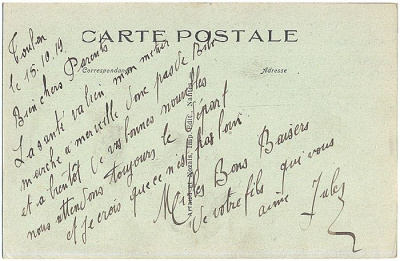 CARTE POSTALE
Correspondance
Adresse
Toulon
le 15.10.19
Bien chers Parents
La santé va bien mon métier
marche a merveille donc pas de Bile
et a bientôt de vos bonnes nouvelles
nous attendons toujours le départ
et je crois que ce n'est pas loin.
Milles Bons Baisers
de votre fils qui vous
aime Jules